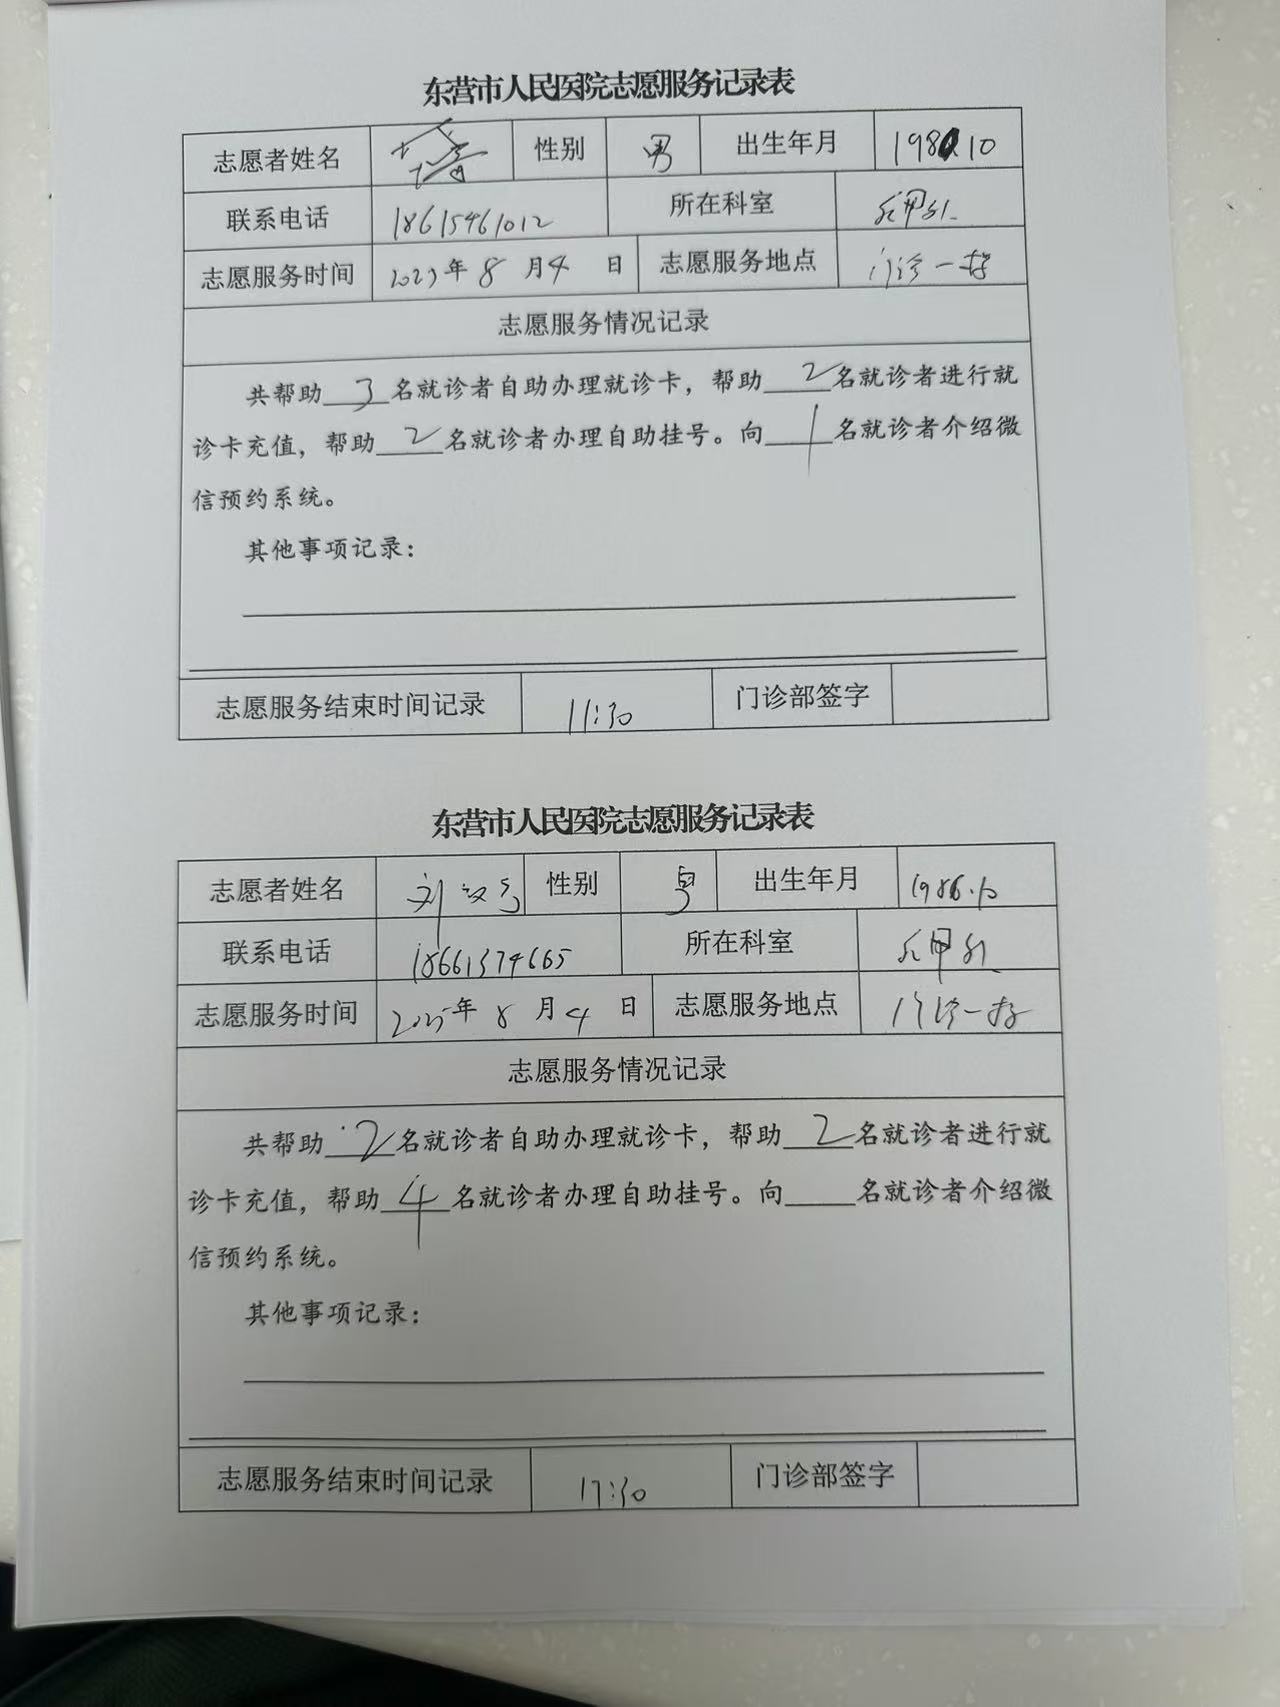 东营市人民医院志愿服务记录表
志愿者姓名 性别 男 出生年月
联系电话 18615461012 所在科室
志愿服务时间 年 8 月 4 日 志愿服务地点 门诊一楼
志愿服务情况记录
共帮助 3 名就诊者自助办理就诊卡，帮助 2 名就诊者进行就
诊卡充值，帮助 2 名就诊者办理自助挂号。向 1 名就诊者介绍微
信预约系统。
其他事项记录：
志愿服务结束时间记录 11:30 门诊部签字
东营市人民医院志愿服务记录表
志愿者姓名 刘 性别 男 出生年月 1986.10
联系电话 18661374665 所在科室
志愿服务时间 2025 年 8 月 4 日 志愿服务地点 门诊一楼
志愿服务情况记录
共帮助 2 名就诊者自助办理就诊卡，帮助 2 名就诊者进行就
诊卡充值，帮助 4 名就诊者办理自助挂号。向 名就诊者介绍微
信预约系统。
其他事项记录：
志愿服务结束时间记录 17:30 门诊部签字